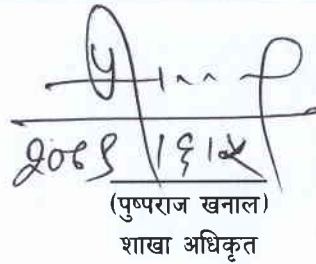 २०८१।६।२५
(पुष्पराज खनाल)
शाखा अधिकृत